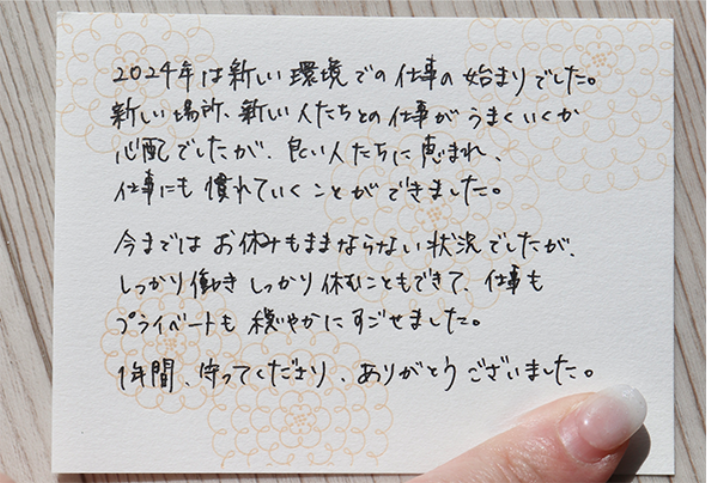 2024年は新しい環境での仕事の始まりでした。
新しい場所、新しい人たちとの仕事がうまくいくか
心配でしたが、良い人たちに恵まれ、
仕事にも慣れていくことができました。
今まではお休みもままならない状況でしたが、
しっかり働きしっかり休むこともできて、仕事も
プライベートも穏やかにすごせました。
1年間、守ってくださり、ありがとうございました。